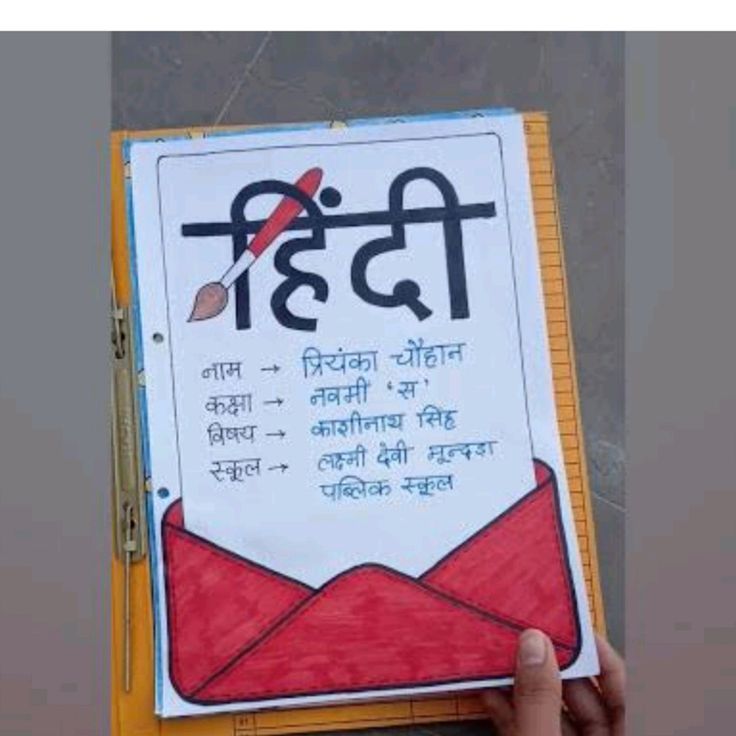 हिंदी
नाम → प्रियंका चौहान
कक्षा → नवमी 'स'
विषय → काशीनाथ सिंह
स्कूल → लक्ष्मी देवी मून्दडा
पब्लिक स्कूल